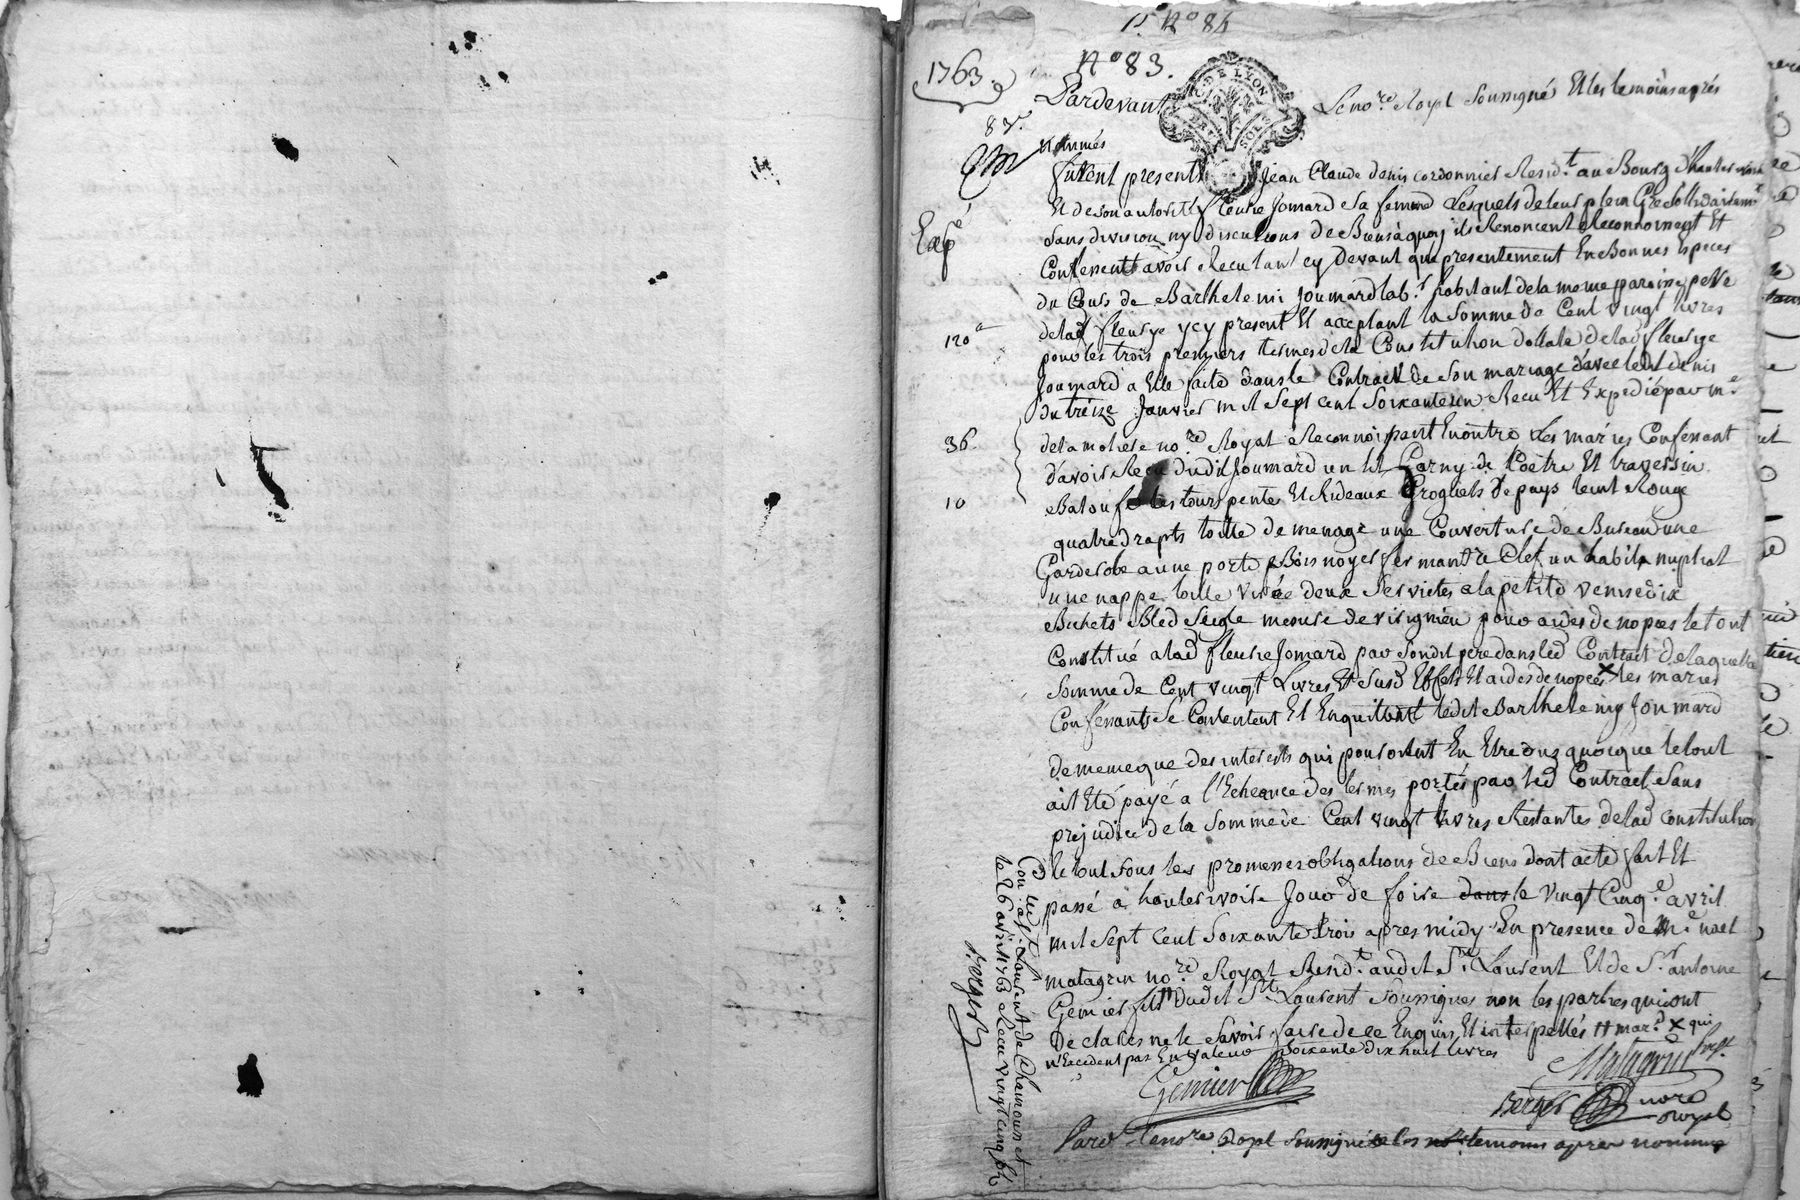 15 No 84
1763
No 83.
G DE LYON
Pardevant Le no.re Royal Soussigné Et les temoins après
nommés
furent presents Jean Claude denis cordonnier Resid.t au Bourg d'hauterivoire
Et de son autorité fleurie Jomard Sa femme Lesquels de leur plein Gré Sollidairem.t
Sans division ny discutions de Biens a quoy ils Renoncent Reconnoissent Et
Confessent avoir Recu tant cy devant que presentement En Bonnes Especes
du Cours de Barthelemi Joumard lab.r habitant de la meme paroisse pere
de lad fleurye ycy present Et acceptant la Somme de Cent vingt livres
pour les trois premiers termes de la Constitution dottale de lad fleurye
Joumard a Elle faite dans le Contract de Son mariage d'avec led denis
du treize Janvier mil Sept cent Soixante un Recu Et Expedié par m.e
delamotere no.re Royal Reconnoissant En outre Les mariés Confessant
d'avoir Recu dudit Joumard un lit Garny de Coëtre Et traversin
Batouf les tours pentes Et Rideaux de pays teint Rouge
quatre drapts toille de menage une Couverture de Bureau une
Garderobe a une porte Bois noyer fermant a Clef un habit nuptial
une nappe toille deux Serviettes a la petite venise dix
Bichets Bled Seigle mesure de virignieu pour aides de nopces le tout
Constitué a lad fleurie Jomard par Son dit pere dans led Contract de laquelle
Somme de Cent vingt Livres Et Susd Effets Et aides de nopces x les mariés
Confessants Se Contentent Et En quittent ledit Barthelemy Joumard
de meme que des interests qui pourroient En Etre dus quoique le tout
ait Eté payé a l'Echeance des termes portés par led Contract Sans
prejudice de la Somme de Cent vingt livres Restantes de lad constitution
le tout Sous les promesses obligations de Biens dont acte fait Et
passé a hauterivoire Jour de foire dans le vingt Cinq.e avril
mil Sept cent Soixante trois apres midy En presence de M.e noel
matagrin no.re Royal Resid.t audit S.t Laurent Et de S.r antoine
Gemier fils dudit S.t Laurent Soussignés non les parties qui ont
Declarés ne le Savoir faire de ce Enquis Et interpellés x qui
n'Excedent pas En valeur Soixante dix huit livres
Gemier
Matagrin
Berger nore Royal
Pard le nore Royal Soussigné les temoins apres nommés
Expé
120
36
10
Con.lé a S.t Laurent de Chamousset
le 26 avril 1763 Recu vingt cinq
Berger